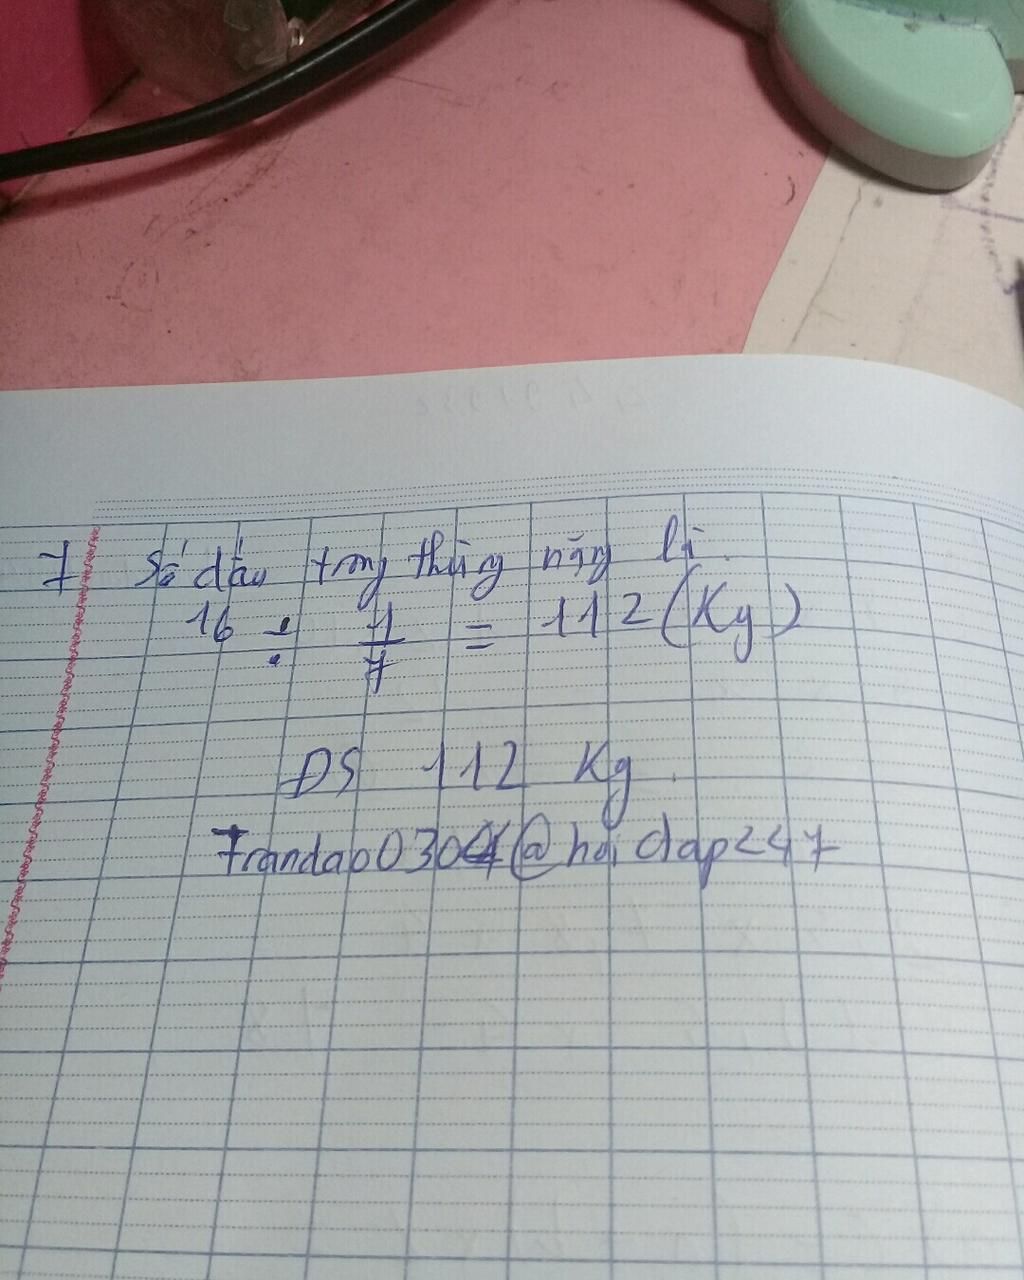 7 Số dầu trong thùng nặng là.
16 : 1/7 = 112 (Kg)
DS 112 Kg.
Trandao0304@hoidap247